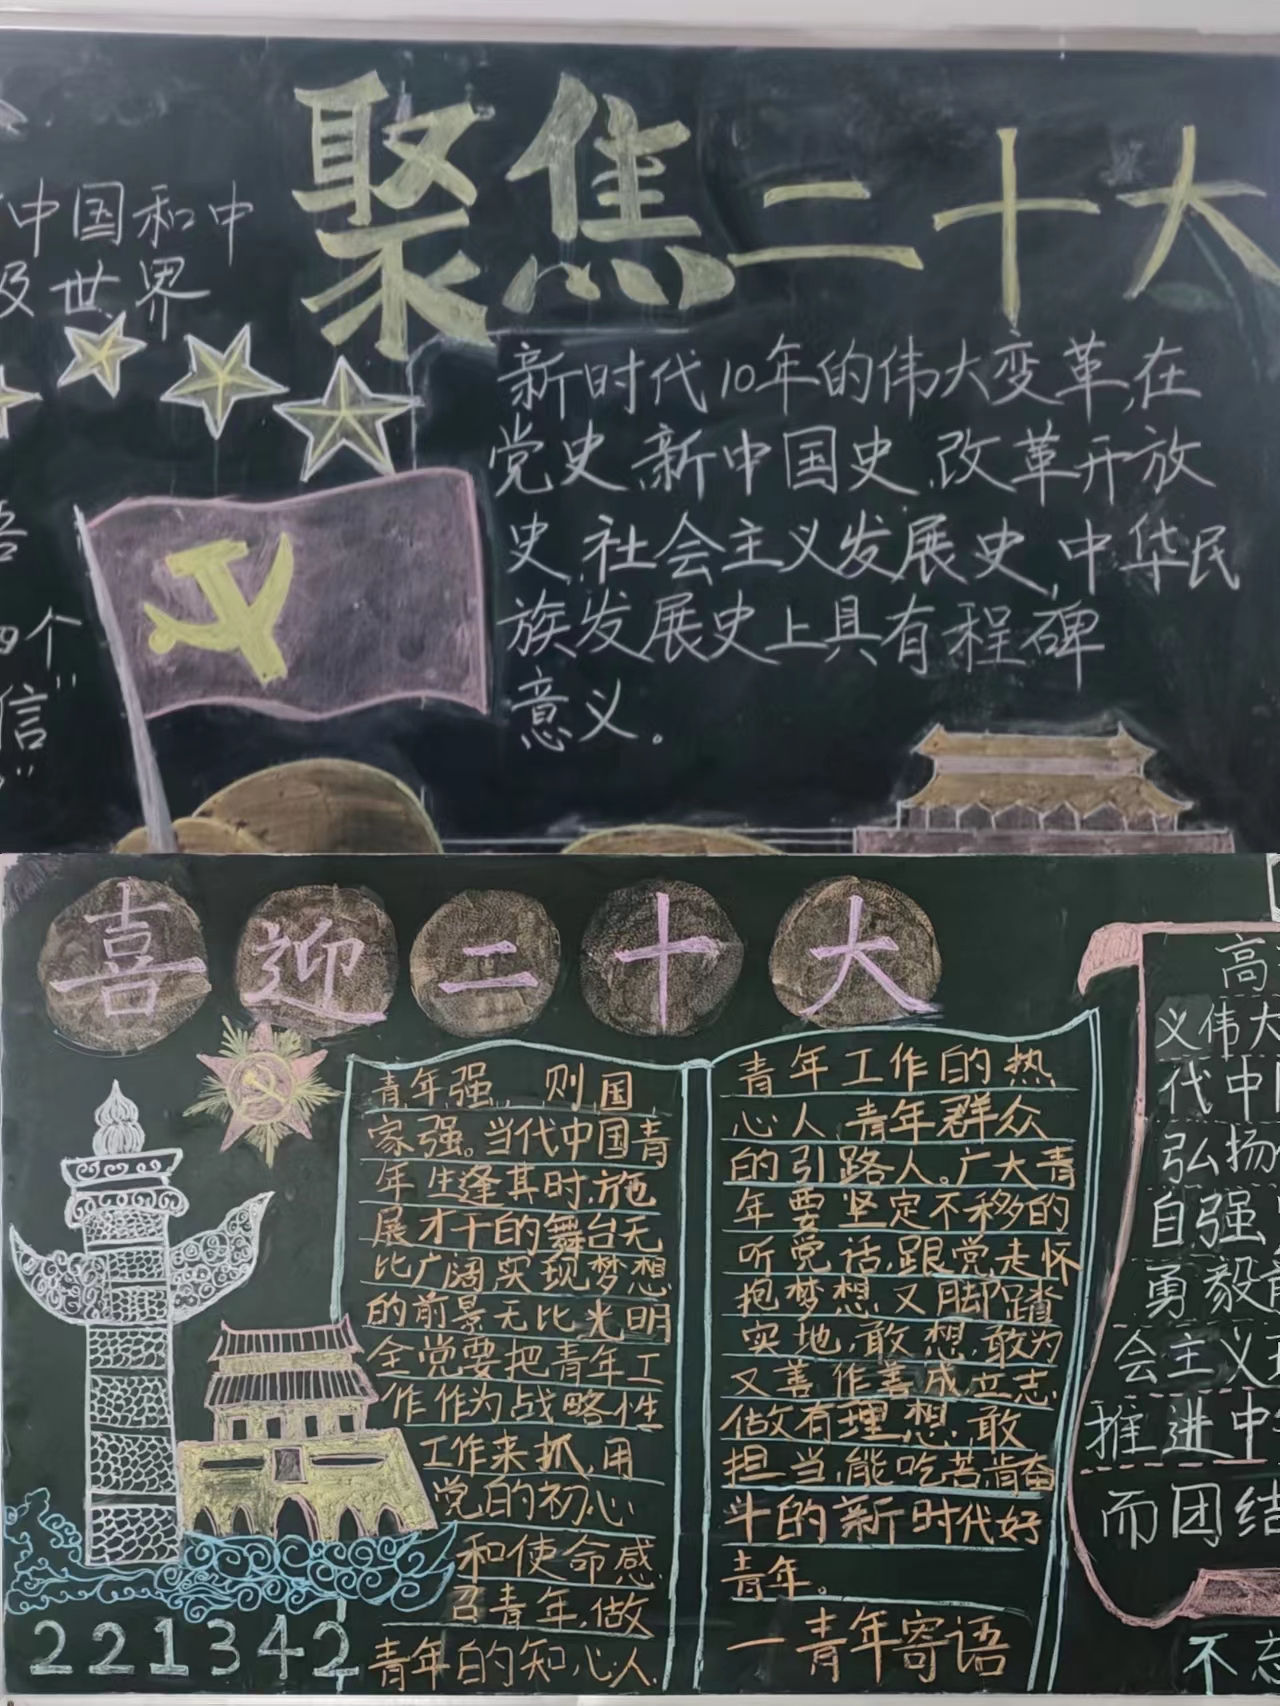 聚焦二十大
中国和中
及世界
新时代10年的伟大变革,在
党史、新中国史、改革开放
史、社会主义发展史、中华民
族发展史上具有程碑
意义。
四个
信"
喜迎二十大
青年强，则国
家强。当代中国青
年生逢其时,施
展才干的舞台无
比广阔实现梦想
的前景无比光明
全党要把青年工
作作为战略性
工作来抓,用
党的初心
和使命感
召青年,做
青年的知心人、
青年工作的热
心人、青年群众
的引路人。广大青
年要坚定不移的
听党话,跟党走怀
抱梦想又脚踏
实地,敢想敢为
又善作善成立志
做有理想、敢
担当,能吃苦肯奋
斗的新时代好
青年。
一青年寄语
221342
高
义伟大
代中
弘扬
自强
勇毅前
会主义
推进中
而团结
不忘